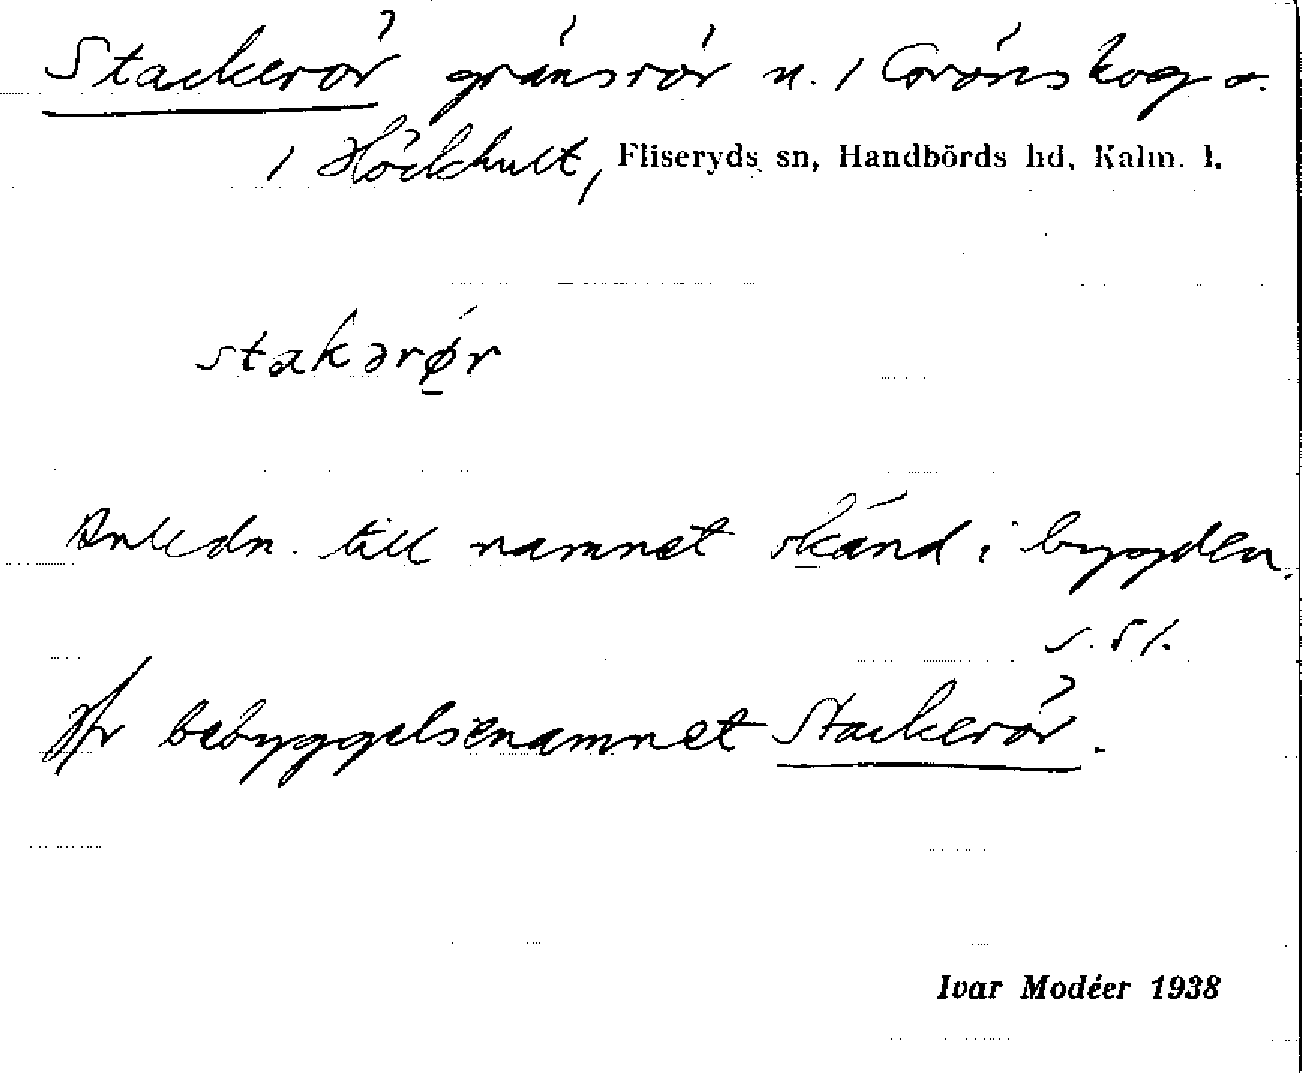 Stackerör gränsrör n. / Grönskog o.
/ Höckhult, Fliseryds sn, Handbörds hd, Kalm. l.
stakərø̱r
Anledn. till namnet okänd i bygden.
Jfr bebyggelsenamnet Stackerör.
Ivar Modéer 1938